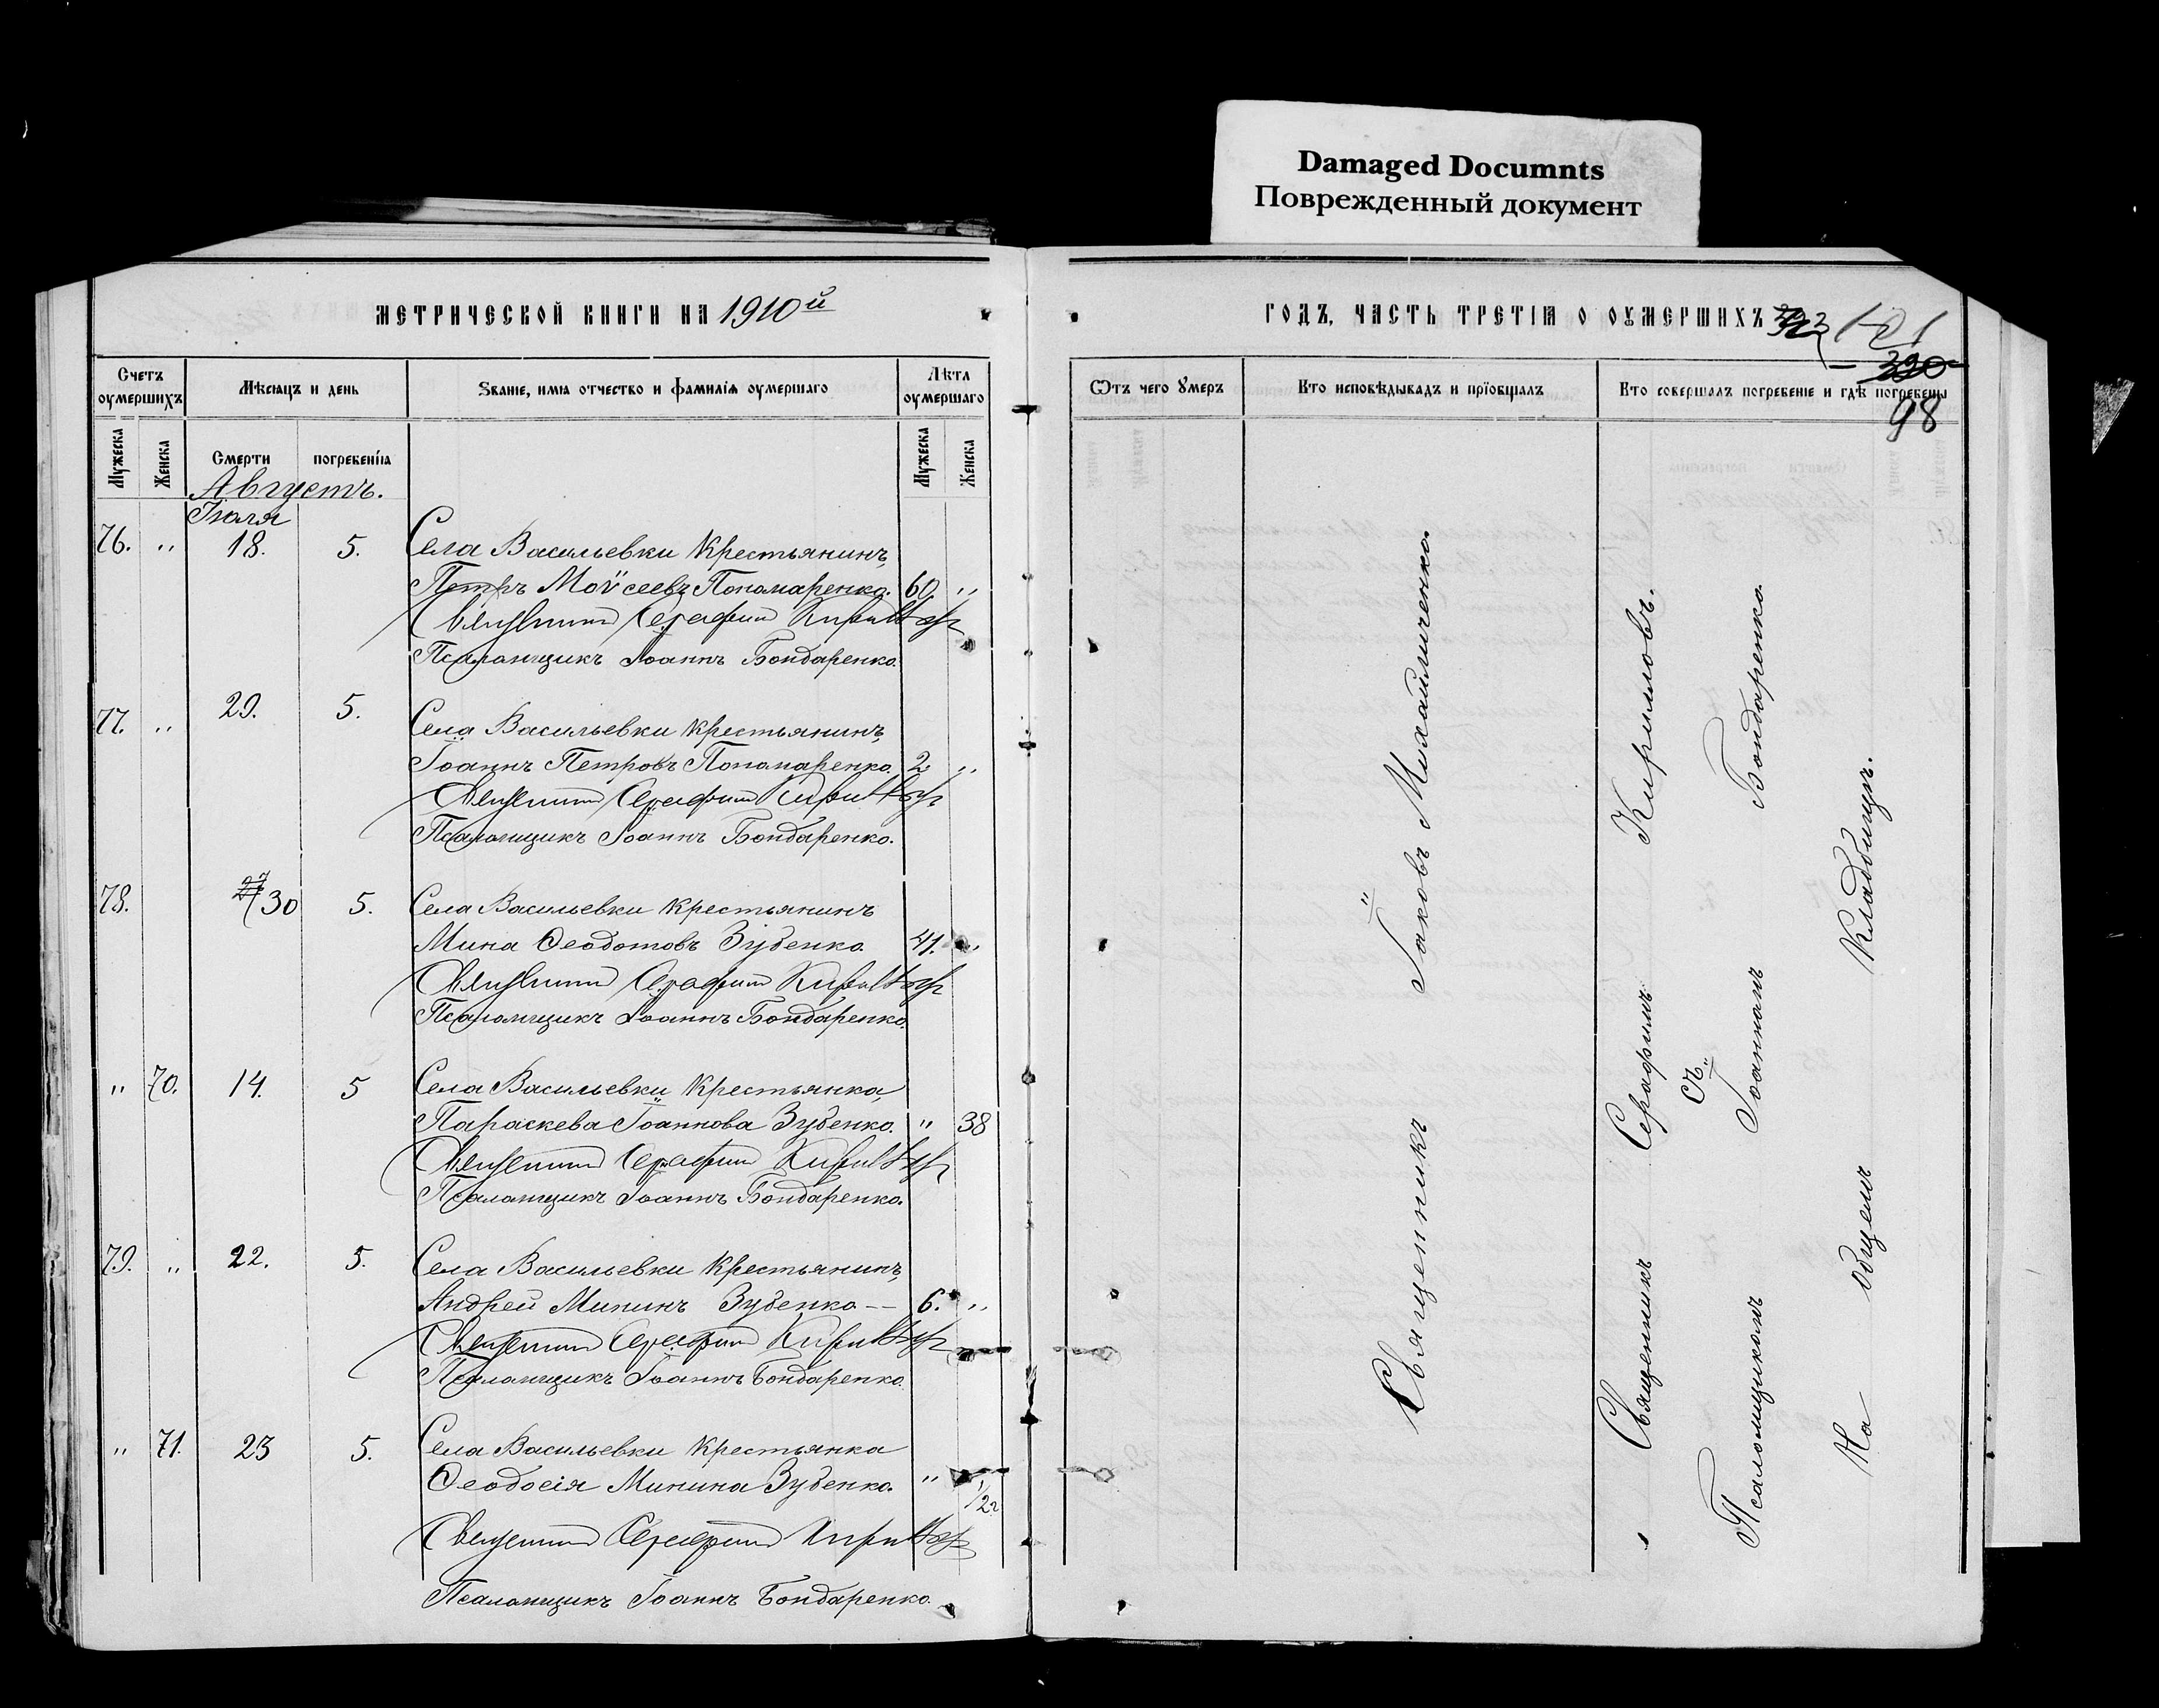 Damaged Documnts
Поврежденный документ
МЕТРИЧЕСКОЙ КНИГИ НА 1910й
Счетъ оумершихъ
Мѣсяцъ и день
Званіе, имя отчество и фамилія оумершаго
Лѣта оумершаго
Мужеска
Женска
Смерти
погребенія
Мужеска
Женска
Августъ.
Іюля
76. " 18. 5. Села Васильевки крестьянинъ,
Петръ Моѵсеевъ Пономаренко. 60 "
Священникъ Серафимъ Кириловъ
Псаломщикъ Іоаннъ Бондаренко.
77. " 29. 5. Села Васильевки крестьянинъ,
Іоаннъ Петровъ Пономаренко. 2. "
Священникъ Серафимъ Кириловъ
Псаломщикъ Іоаннъ Бондаренко.
78. 30 5. Села Васильевки крестьянинъ
Мина Ѳеодотовъ Зубенко 41. "
Священникъ Серафимъ Кириловъ
Псаломщикъ Іоаннъ Бондаренко.
" 70. 14. 5 Села Васильевки крестьянка,
Параскева Іоаннова Зубенко. " 38
Священникъ Серафимъ Кириловъ
Псаломщикъ Іоаннъ Бондаренко.
79. " 22. 5. Села Васильевки крестьянинъ,
Андрей Мининъ Зубенко — 6. "
Священникъ Серафимъ Кириловъ
Псаломщикъ Іоаннъ Бондаренко.
" 71. 23 5. Села Васильевки крестьянка
Ѳеодосія Минина Зубенко. " 1/2 г
Священникъ Серафимъ Кириловъ
Псаломщикъ Іоаннъ Бондаренко.
ГОДЪ, ЧАСТЬ ТРЕТІЯ О ОУМЕРШИХЪ
390
98
Ѿтъ чего Умеръ
Кто исповѣдывалъ и пріобщалъ
Кто совершалъ погребеніе и гдѣ погребены
Священникъ Іаковъ Михайличенко.
Священникъ Серафимъ Кириловъ.
съ
Псаломщикомъ Іоанномъ Бондаренко.
На общемъ кладбищѣ.